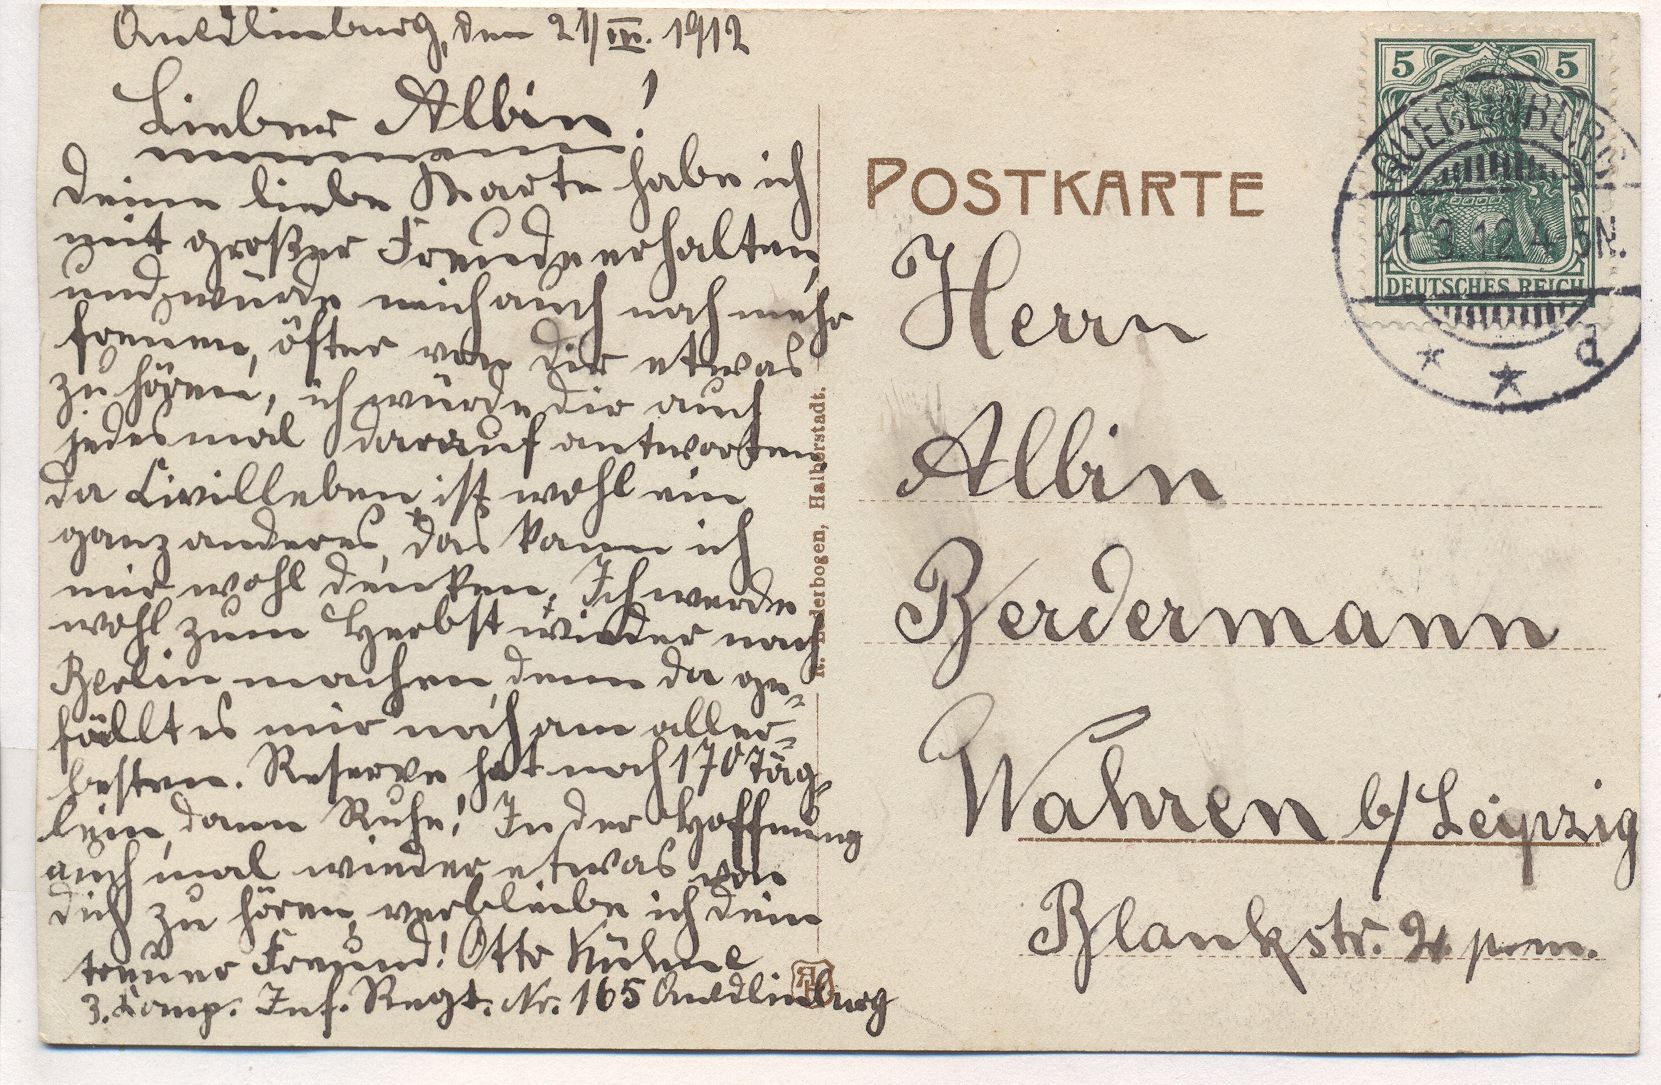 Quedlinburg, den 21/III. 1912
Lieber Albin!
Deine liebe Karte habe ich
mit großer Freude erhalten,
und würde mich auch noch mehr
freuen, öfter von Dir etwas
zu hören, ich würde Dir auch
jedesmal darauf antworten
da Civilleben ist wohl ein
ganz anderes, das kann ich
mir wohl denken. Ich werde
wohl zum Herbst wieder nach
Berlin machen, denn da ge-
fällt es mir noch am aller-
besten. Reserve hat noch 170 Täg-
lein, dann Ruhe! In der Hoffnung
auch mal wieder etwas von
dich zu hören, verbleibe ich dein
treuer Freund! Otto Kühne
3. Komp. Inf. Regt. Nr. 165 Quedlinburg
Lederbogen, Halberstadt.
POSTKARTE
5 5
QUEDLINBURG
21.3.12.4-5N.
DEUTSCHES REICH
* * d
Herrn
Albin
Berdermann
Wahren b/Leipzig
Blankstr. 2